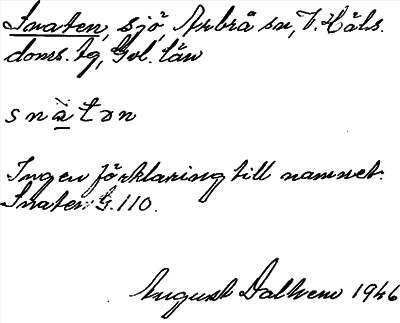 Snaten, sjö, Arbrå sn, V. Häls.
doms. tg, Gvl. län
snatən
Ingen förklaring till namnet.
Snaten G. 110.
August Dalhem 1946